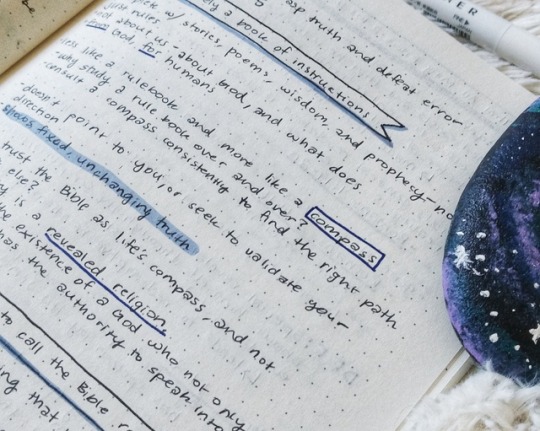 asp truth and defeat error
ely a book of instructions
pick w/ stories, poems, wisdom, and prophesy-no
just rules
Book about us - about God, and what does
God for humans
less like a rulebook and more like a compass
why study a rule book over and over?
consult a compass consistently to find the right path
doesn't point to you, or seek to validate your
direction
shows fixed, unchanging truth
trust the Bible as life's compass, and not
else?
y is a revealed religion
he existence of a God who not only
has the authority to speak into
to call the Bible
ing that
TER